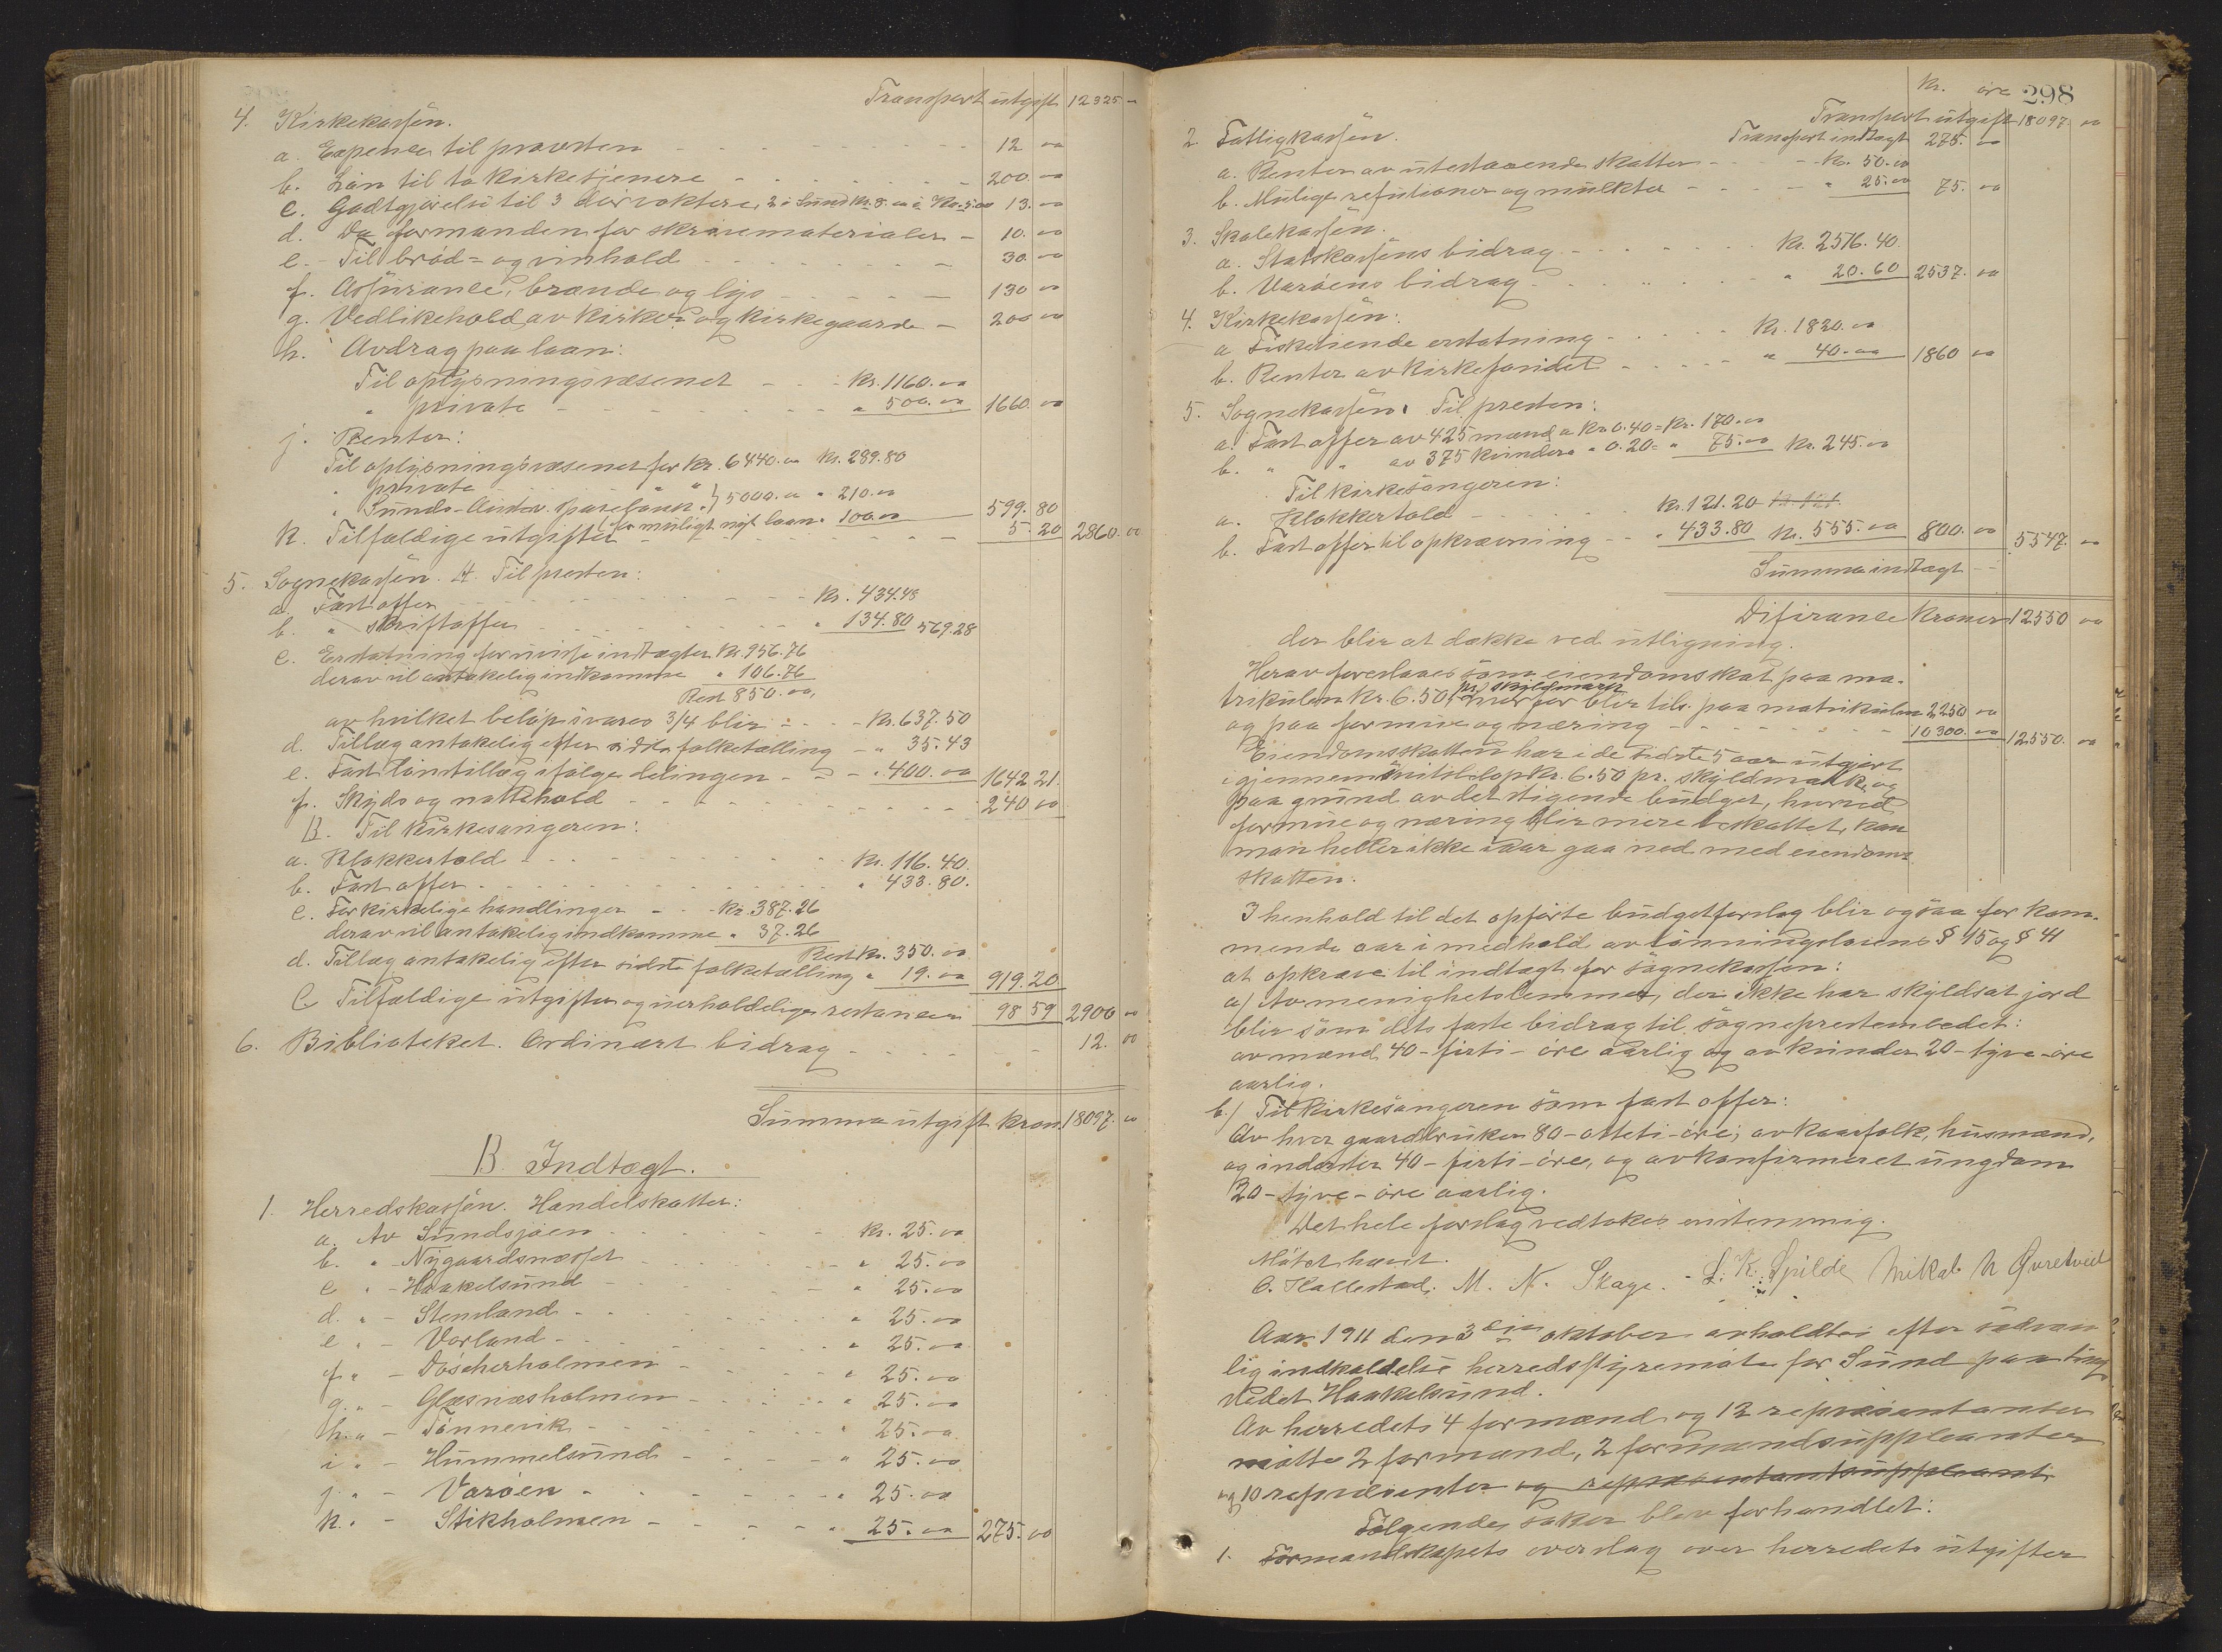 Transport utgift 12325 -
4. Kirkekassen.
a. Expencer til provsten - - - 12 00
b. Løn til to kirketjenere - - - 200. 00
c. Godtgjørelse til 3 dørvoktere, 2 i Sund kr. 8.00 i Kr. 5.00 13. 00
d. Do formanden for skrivematerialer - 10. 00
e. - Til brød- og vinhold - - - 30. 00
f. Assurance, brænde og lys - - - 130 00
g. Vedlikehold av kirker og kirkegaarde - 200 00
h. Avdrag paa laan:
Til oplysningsvæsenet - - - kr. 1160.00
" private - - - " 500.00 1660. 00
j. Renter:
Til oplysningsvæsenet for kr. 6440.00 kr. 289.80
" private " "
" Sunds-Austev. sparebank " } 5000.00 " 210.00
for muligt nyt laan " 100.00 599. 80
k. Tilfældige utgifter - - - 5. 20 2860. 00
5. Sognekassen. A. Til presten:
a. Fast offer - - - kr. 434.48
b. " skriftoffer - - - " 134.80 569.28
c. Erstatning for visse indtægter kr. 956.76
derav vil antakelig indkomme " 106.76
Rest 850.00,
av hvilket beløp svares 3/4 blir - - - kr. 637.50
d. Tillæg antakelig efter sidste folketælling - " 35.43
e. Fast lønstillæg ifølge delingen - - - " 400.00 1642 21.
f. Skyds og nattehold - - - 240 00
B. Til kirkesangeren:
a. Klokkertold - - - kr. 116.40.
b. Fast offer - - - " 433.80.
c. For kirkelige handlinger - - kr. 387.26
derav vil antakelig indkomme " 37.26
Rest kr. 350.00
d. Tillæg antakelig efter sidste folketælling " 19.00 919.20
C Tilfældige utgifter og uerholdelige restancer 98 59 2900 00
6. Biblioteket. Ordinært bidrag - - - 12. 00
Summa utgift kron. 18097. 00
B. Indtægt.
1. Herredskassen. Handelskatter:
a. Av Sundsjøen - - - kr. 25.00
b. " - Nygaardsnesset - - - " 25.00
c " - Haakelsund - - - " 25.00
d. " - Stemland - - - " 25.00
e " - Vorland - - - " 25.00
f. " - Døscherholmen - - - " 25.00
g. " - Glæsnæsholmen - - - " 25.00
h. " - Tønnevik - - - " 25.00
i " - Hummelsund - - - " 25.00
j " - Varøen - - - " 25.00
k. " - Stikholmen - - - " 25.00 275. 00
Kr. øre 298
Transport utgift 18097. 00
2 Fattigkassen. Transport indtægt 275. 00
a. Renter av utestaaende skatter - - - kr. 50.00
b. Mulige refusioner og mulkter - - - " 25.00 75. 00
3. Skolekassen.
a. Statskassens bidrag - - - kr. 2516.40.
b. Varøens bidrag - - - " 20.60 2537. 00
4. Kirkekassen:
a Fisketiende erstatning - - - kr. 1820.00
b. Renter av kirkefondet - - - " 40.00 1860 00
5. Sognekassen. Til presten:
a. Fast offer av 425 mænd a kr. 0.40 = kr. 170.00
b. " " av 375 kvinder a " 0.20 = " 75.00 kr. 245.00
Til kirkesangeren:
a. Klokkertold - - - kr. 121.20 kr. 121.
b. Fast offer til opkrævning - - " 433.80 kr. 555.00 800. 00 5547. 00
Summa indtægt - -
Diferance kroner 12550 00
der blir at dække ved utligning.
Herav foreslaaes som eiendomskat paa ma-
trikulen kr. 6.50 pr skyldmark hvorfor blir tils. paa matrikulen 2250 00
og paa formue og næring - - - 10300. 00 12550. 00
Eiendomsskatten har i de sidste 5 aar utgjort
i gjennemsnitibeløp kr. 6.50 pr. skyldmark, og
paa grund av det stigende budget, hvorved
formue og næring blir mere beskattet, kan
man heller ikke iaar gaa ned med eiendoms-
skatten.
I henhold til det opførte budgetforslag blir ogsaa for kom-
mende aar i medhold av lønningslovens § 15 og § 41
at opkræve til indtægt for sognekassen:
a) Av menighetslemmer, der ikke har skyldsat jord
blir som dets faste bidrag til sogneprestembedet:
av mænd 40 - firti - øre aarlig og av kvinder 20 - tyve - øre
aarlig.
b.) Til kirkesangeren som fast offer:
Av hver gaardbruker 80 - otteti - øre; av kaarfolk, husmænd,
og inderster 40 - firti - øre, og av konfirmeret ungdom
20 - tyve - øre aarlig.
Det hele forslag vedtokes enstemmig.
Møtet hævet.
O. Kallestad. M. N. Skage. L. K. Spilde Mikal N Øvretveit
Aar 1911 den 3die oktober avholdtes efter sædvan-
lig indkaldelse herredsstyremøte for Sund paa ting-
stedet Haakelsund.
Av herredets 4 formænd og 12 repræsentanter
møtte 2 formænd, 2 formandsuppleanter
og 10 repræsenter og repræsentantsuppleant.
Følgende saker blev forhandlet:
1. Formandskapets overslag over herredets utgifter